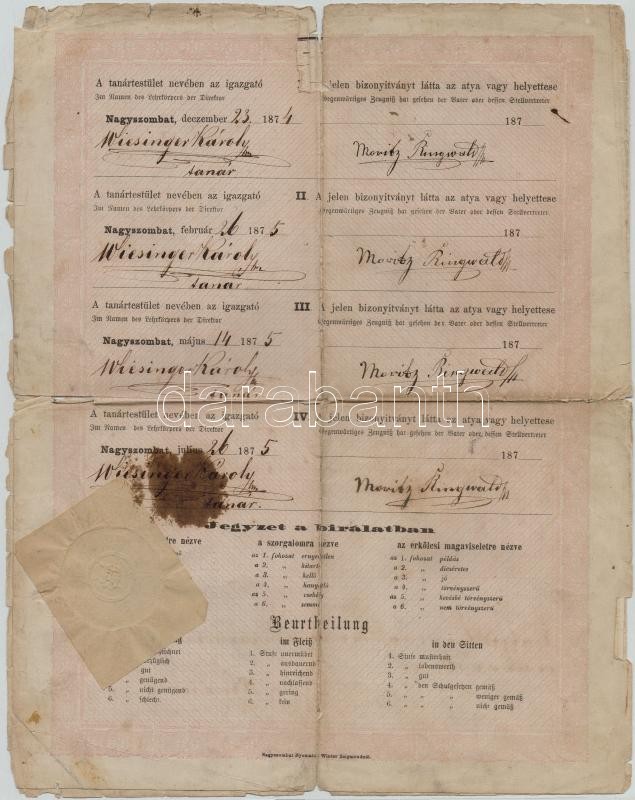 A tanártestület nevében az igazgató
Im Namen des Lehrkörpers der Direktor
Nagyszombat, deczember 23. 1874
Wiesinger Károly
tanár
jelen bizonyitványt látta az atya vagy helyettese
Gegenwärtiges Zeugniß hat gesehen der Vater oder dessen Stellvertreter
187
Moritz Ringwald
A tanártestület nevében az igazgató
Im Namen des Lehrkörpers der Direktor
Nagyszombat, február 26 1875
Wiesinger Károly
tanár
II. A jelen bizonyitványt látta az atya vagy helyettese
Gegenwärtiges Zeugniß hat gesehen der Vater oder dessen Stellvertreter
187
Moritz Ringwald
A tanártestület nevében az igazgató
Im Namen des Lehrkörpers der Direktor
Nagyszombat, május 14 1875
Wiesinger Károly
tanár
III. A jelen bizonyitványt látta az atya vagy helyettese
Gegenwärtiges Zeugniß hat gesehen der Vater oder dessen Stellvertreter
187
Moritz Ringwald
darabanth
A tanártestület nevében az igazgató
Im Namen des Lehrkörpers der Direktor
Nagyszombat, julius 26 1875
Wiesinger Károly
tanár.
IV. jelen bizonyitványt látta az atya vagy helyettese
Gegenwärtiges Zeugniß hat gesehen der Vater oder dessen Stellvertreter
187
Moritz Ringwald
Jegyzet a birálatban
nézve
a szorgalomra nézve
az 1. fokozat
a 2. "
a 3. " kellő
a 4. "
az 5. "
a 6. "
az erkölcsi magaviseletre nézve
az 1. fokozat példás
a 2. " dicséretes
a 3. " jó
a 4. " törvényszerű
az 5. " kevésbé törvényszerű
a 6. " nem törvényszerű
Beurtheilung
" gut
" genügend
5. " nicht genügend
6. " schlecht.
im Fleiß
1. Stufe unermüdet
2. " ausdauernd
3. " hinreichend
4. " nachlassend
5. " gering
6. " kein
in den Sitten
1. Stufe musterhaft
2. " lobenswerth
3. " gut
4. " den Schulgesetzen gemäß
5. " " " weniger gemäß
6. " " " nicht gemäß
Nagyszombat Winter Zsigmondnál.